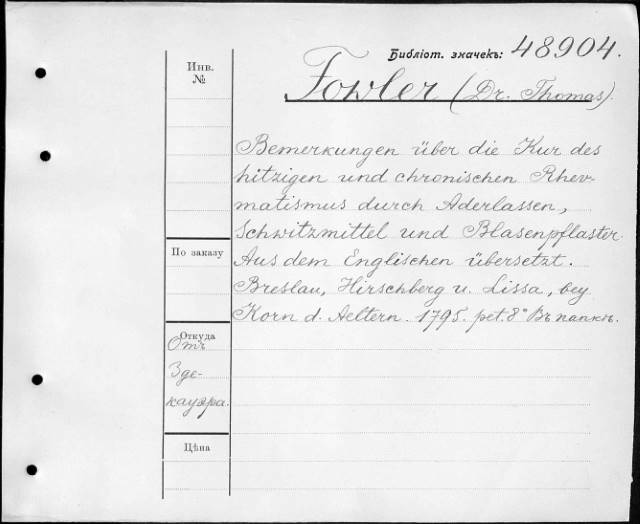 Библіот. значекъ: 48904.
Инв.
№
Fowler (Dr. Thomas).
Bemerkungen über die Kur des
hitzigen und chronischen Rhev-
matismus durch Aderlassen,
Schwitzmittel und Blasenpflaster
Aus dem Englischen übersetzt.
Breslau, Hirschberg u. Lissa, bey
Korn d. Aeltern. 1795. pet. 8° Въ папкѣ.
По заказу
Откуда
Отъ
Зде-
кауэра.
Цѣна